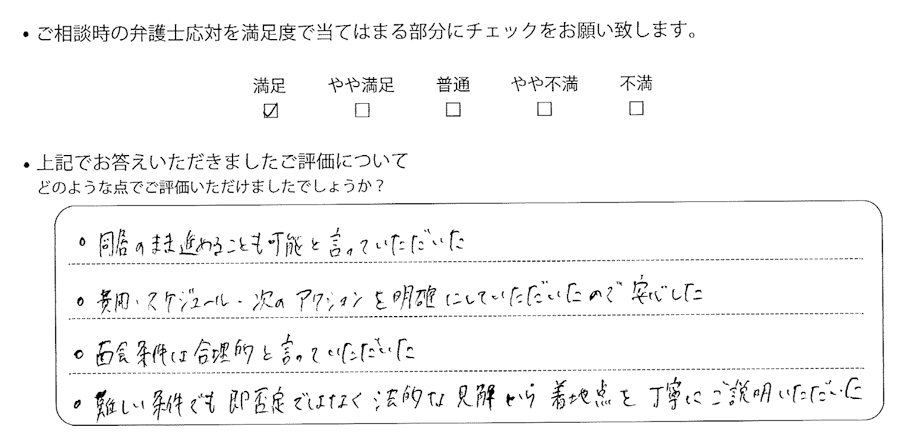 ・ご相談時の弁護士応対を満足度で当てはまる部分にチェックをお願い致します。
満足 やや満足 普通 やや不満 不満
☑ □ □ □ □
・上記でお答えいただきましたご評価について
どのような点でご評価いただけましたでしょうか？
。同居のまま進めることも可能と言っていただいた
。費用・スケジュール・次のアクションを明確にしていただいたので安心した
。面会条件は合理的と言っていただいた
。難しい条件でも即否定ではなく法的な見解から着地点を丁寧にご説明いただいた